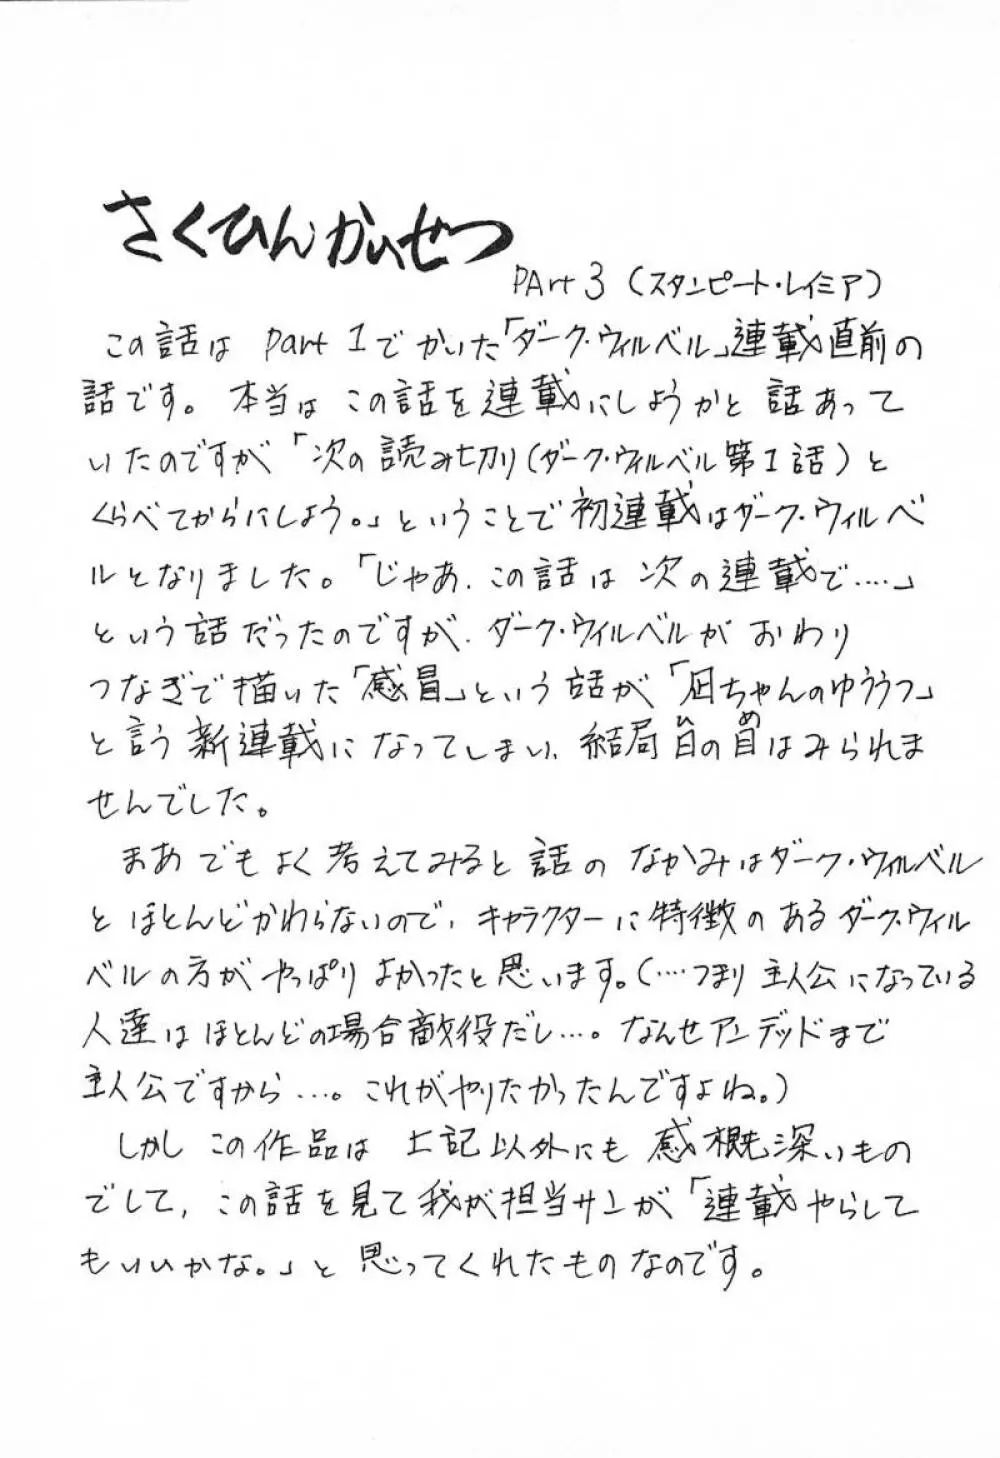 さくひんかいせつ
PArt 3 (スタンピート・レイミア)
この話は part 1でかいた「ダーク・ウィルベル」連載直前の
話です。本当は この話を連載にしようかと 話あって
いたのですが「次の読み切り(ダーク・ウィルベル第1話)と
くらべてからにしよう。」ということで初連載はダーク・ウィルベ
ルとなりました。「じゃあ、この話は 次の連載で‥‥」
という話だったのですが、ダーク・ウィルベルが おわり
つなぎで描いた「感冒」という話が「凪ちゃんのゆううつ」
と言う新連載になってしまい、結局日の目はみられま
せんでした。
まあ でもよく考えてみると 話の なかみはダーク・ウィルベル
とほとんどかわらないので、キャラクターに特徴のあるダーク・ウィル
ベルの方が やっぱり よかったと思います。(‥‥つまり 主人公になっている
人達はほとんどの場合敵役だし‥‥。なんせアンデッドまで
主人公ですから‥‥。これがやりたかったんですよね。)
しかし この作品は 上記以外にも 感概深いもの
でして、この話を見て我が担当サンが「連載やらして
もいいかな。」と 思ってくれたものなのです。